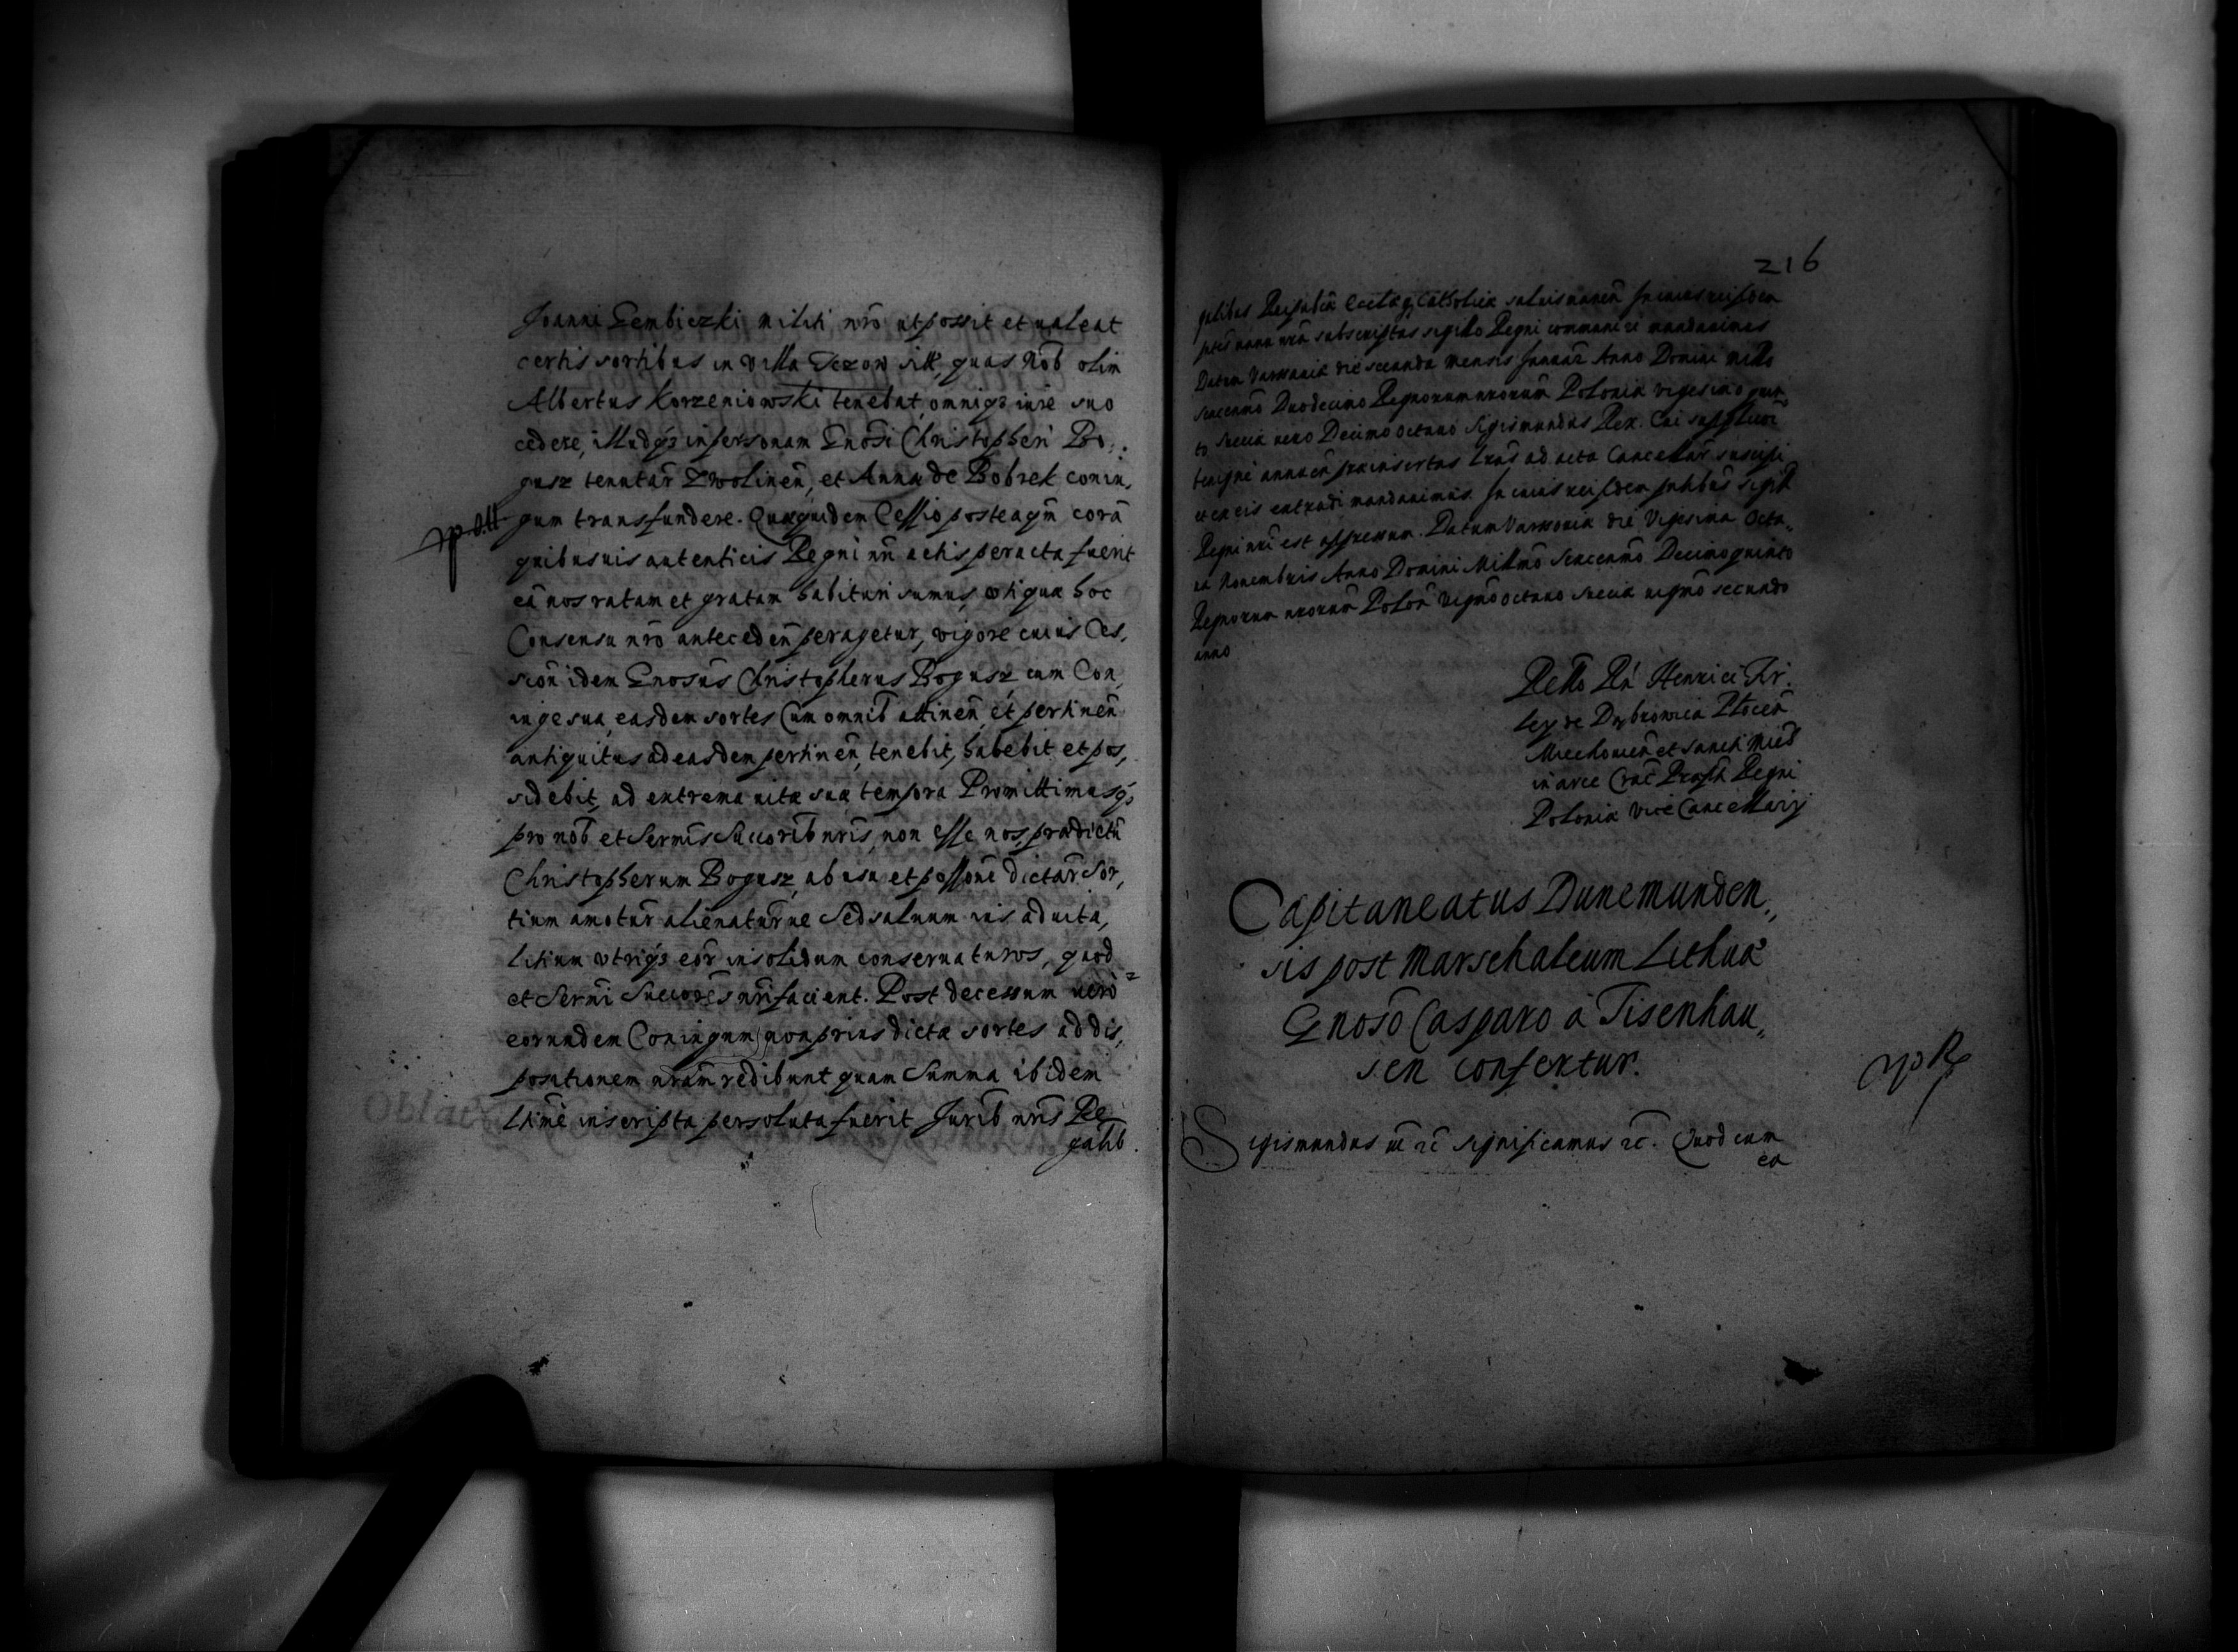 Joanni Gembiczki militi nrõ ut possit et ualeat
certis sortibus in villa Tczow sitt, quas Nob olim
Albertus Korzeniowski tenebat, omniqz iure suo
cedere, illudqz in personam Gnosi Christopheri Bo,
gusz tenutar̃ Zwolineñ, et Anna de Bobrek coniu,
gum transfundere. Quaquidem Cessio posteaqm̃ corã
quibusuis autenticis Regni nri actis peracta fuerit
eã nos ratam et gratam habituri sumus, etiqua hoc
Consensu nrõ antecedeñ peragetur, vigore cuius Ces,
sioñ idem Gnosus Christopherus Bogusz cum Con,
iuge sua, easdem sortes Cum omnib̃ attineñ, et pertineñ
antiquitus ad easdem pertineñ, tenebit, habebit et pos,
sidebit, ad extrema uitæ suæ tempora Promittimusqz
pro nob̃ et Sermis Succorib̃ nris, non esse nos, prædictũ
Christopherum Bogusz, ab usu et possone dictar̃ Sor,
tium amotur̃ alienatur̃ue Sed saluum ius aduita,
litium vtriqz eor̃ insolidum conseruaturos, quod
et Sermi Succores nri facient. Post decessum uero
eorundem Coniugum, non prius dictæ sortes ad dis,
positionem nram̃ redibunt quam Summa ibidem
Ltime inscripta persoluta fuerit Jurib̃ nris Re
galib.
216
galibus Reipublicæ Ecclæqz Catholicæ saluis maneñ In cuius rei fidem
pñtes manu nra subscriptas sigillo Regni communiri mandauimus
Datum Varsauiæ die secunda mensis Januar̃ Anno Domini millo
sexcenmo Duodecimo Regnorum nrorum Poloniæ vigesimo quin
to Sueciæ uero Decimo octauo Sigismundus Rex. Cui supplicõi
benigne annueñ præinsertas Lras ad acta Cancellar̃ suscipi
et ex eis extradi mandauimus. In cuius rei fidem pñtibus sigill
Regni nri est appressum. Datum Varsouiæ die Vigesima Octa,
ua Nouembris Anno Domini Millmo Sexcenmo Decimo quinto
Regnorum nrorum Polon̄ vigmo octauo Sueciæ uigmo secundo
anno
Relto Rñ Henrici Fir
ley de Dąbrowica Ploceñ
Miechouieñ et Sancti Mich
in arce Crac̃ Præpti Regni
Poloniæ Vice Cancellarij
Capitaneatus Dunemunden,
sis post Marschaleum Lithuæ
Gnosõ Casparo à Tisenhau,
sen confertur.
Sigismundus iii rc̃ significamus rc̃. Quod cum
ea